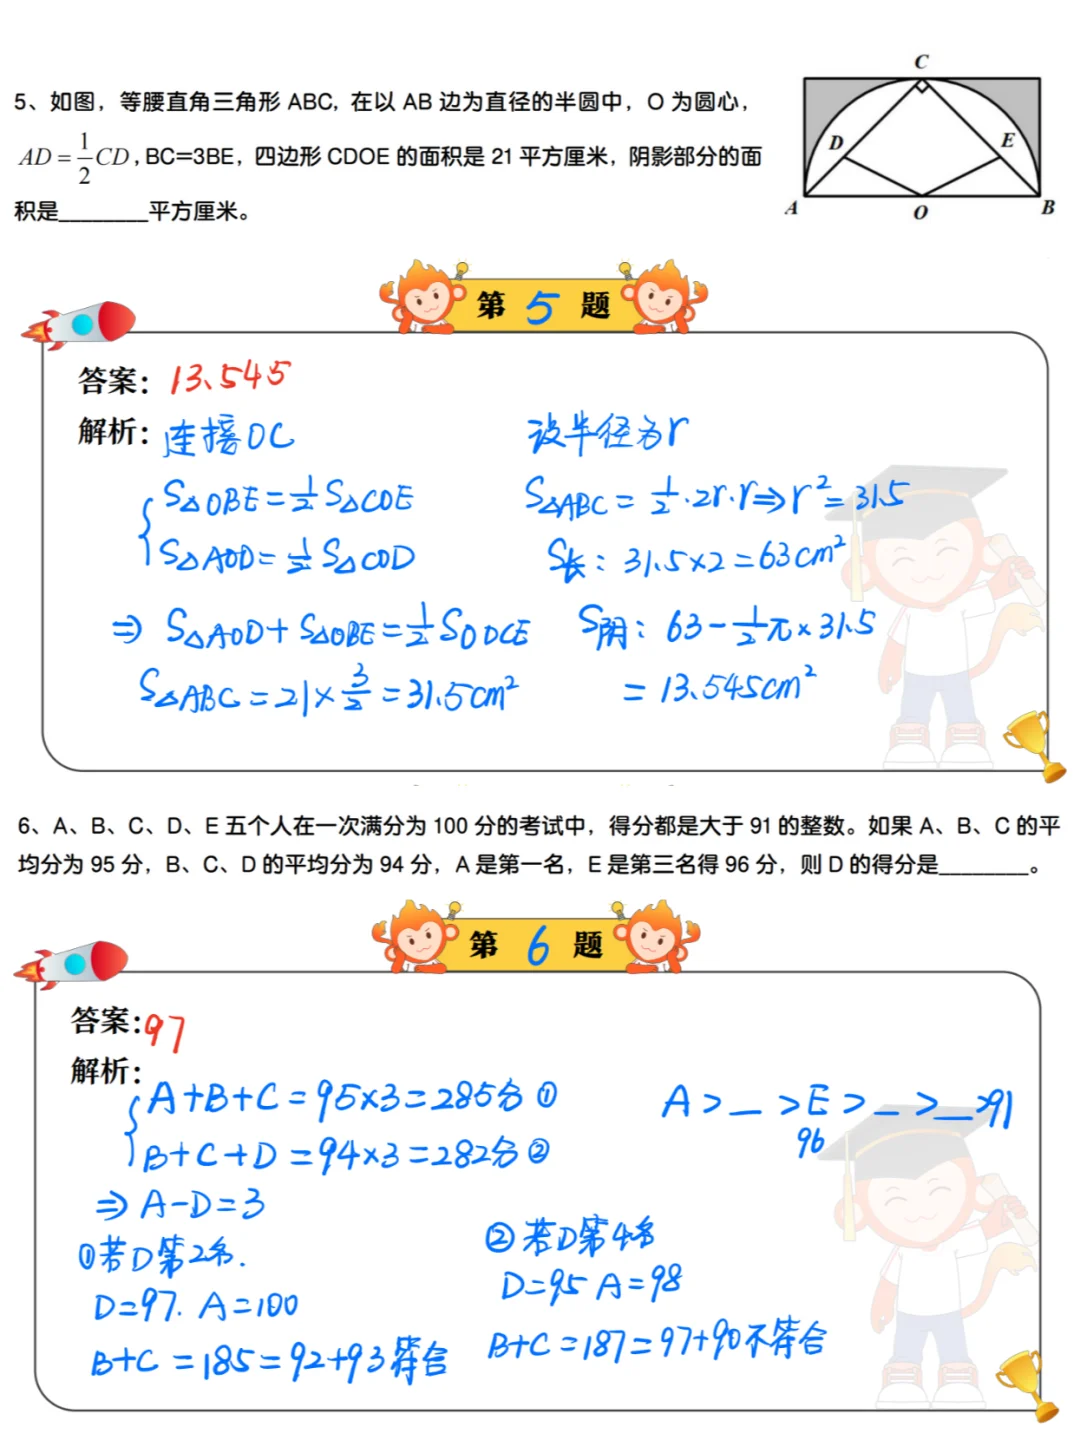 5、如图，等腰直角三角形 ABC, 在以 AB 边为直径的半圆中，O 为圆心，
AD = 1/2 CD , BC=3BE，四边形 CDOE 的面积是 21 平方厘米，阴影部分的面
积是________平方厘米。
C
D
E
A
O
B
第 5 题
答案： 13.545
解析： 连接OC
设半径为r
{S△OBE=1/2 S△COE
S△AOD=1/2 S△COD
⇒ S△AOD+S△OBE=1/2 SODCE
S△ABC=21×3/2=31.5cm²
S△ABC=1/2·2r·r⇒r²=31.5
S长：31.5×2=63cm²
S阴：63-1/2π×31.5
=13.545cm²
6、A、B、C、D、E 五个人在一次满分为 100 分的考试中，得分都是大于 91 的整数。如果 A、B、C 的平
均分为 95 分，B、C、D 的平均分为 94 分，A 是第一名，E 是第三名得 96 分，则 D 的得分是________。
第 6 题
答案：97
解析：
{A+B+C=95×3=285分 ①
B+C+D=94×3=282分 ②
⇒ A-D=3
①若D第2名.
D=97. A=100
B+C=185=92+93符合
A>_>E>_>_>91
96
②若D第4名
D=95 A=98
B+C=187=97+90不符合